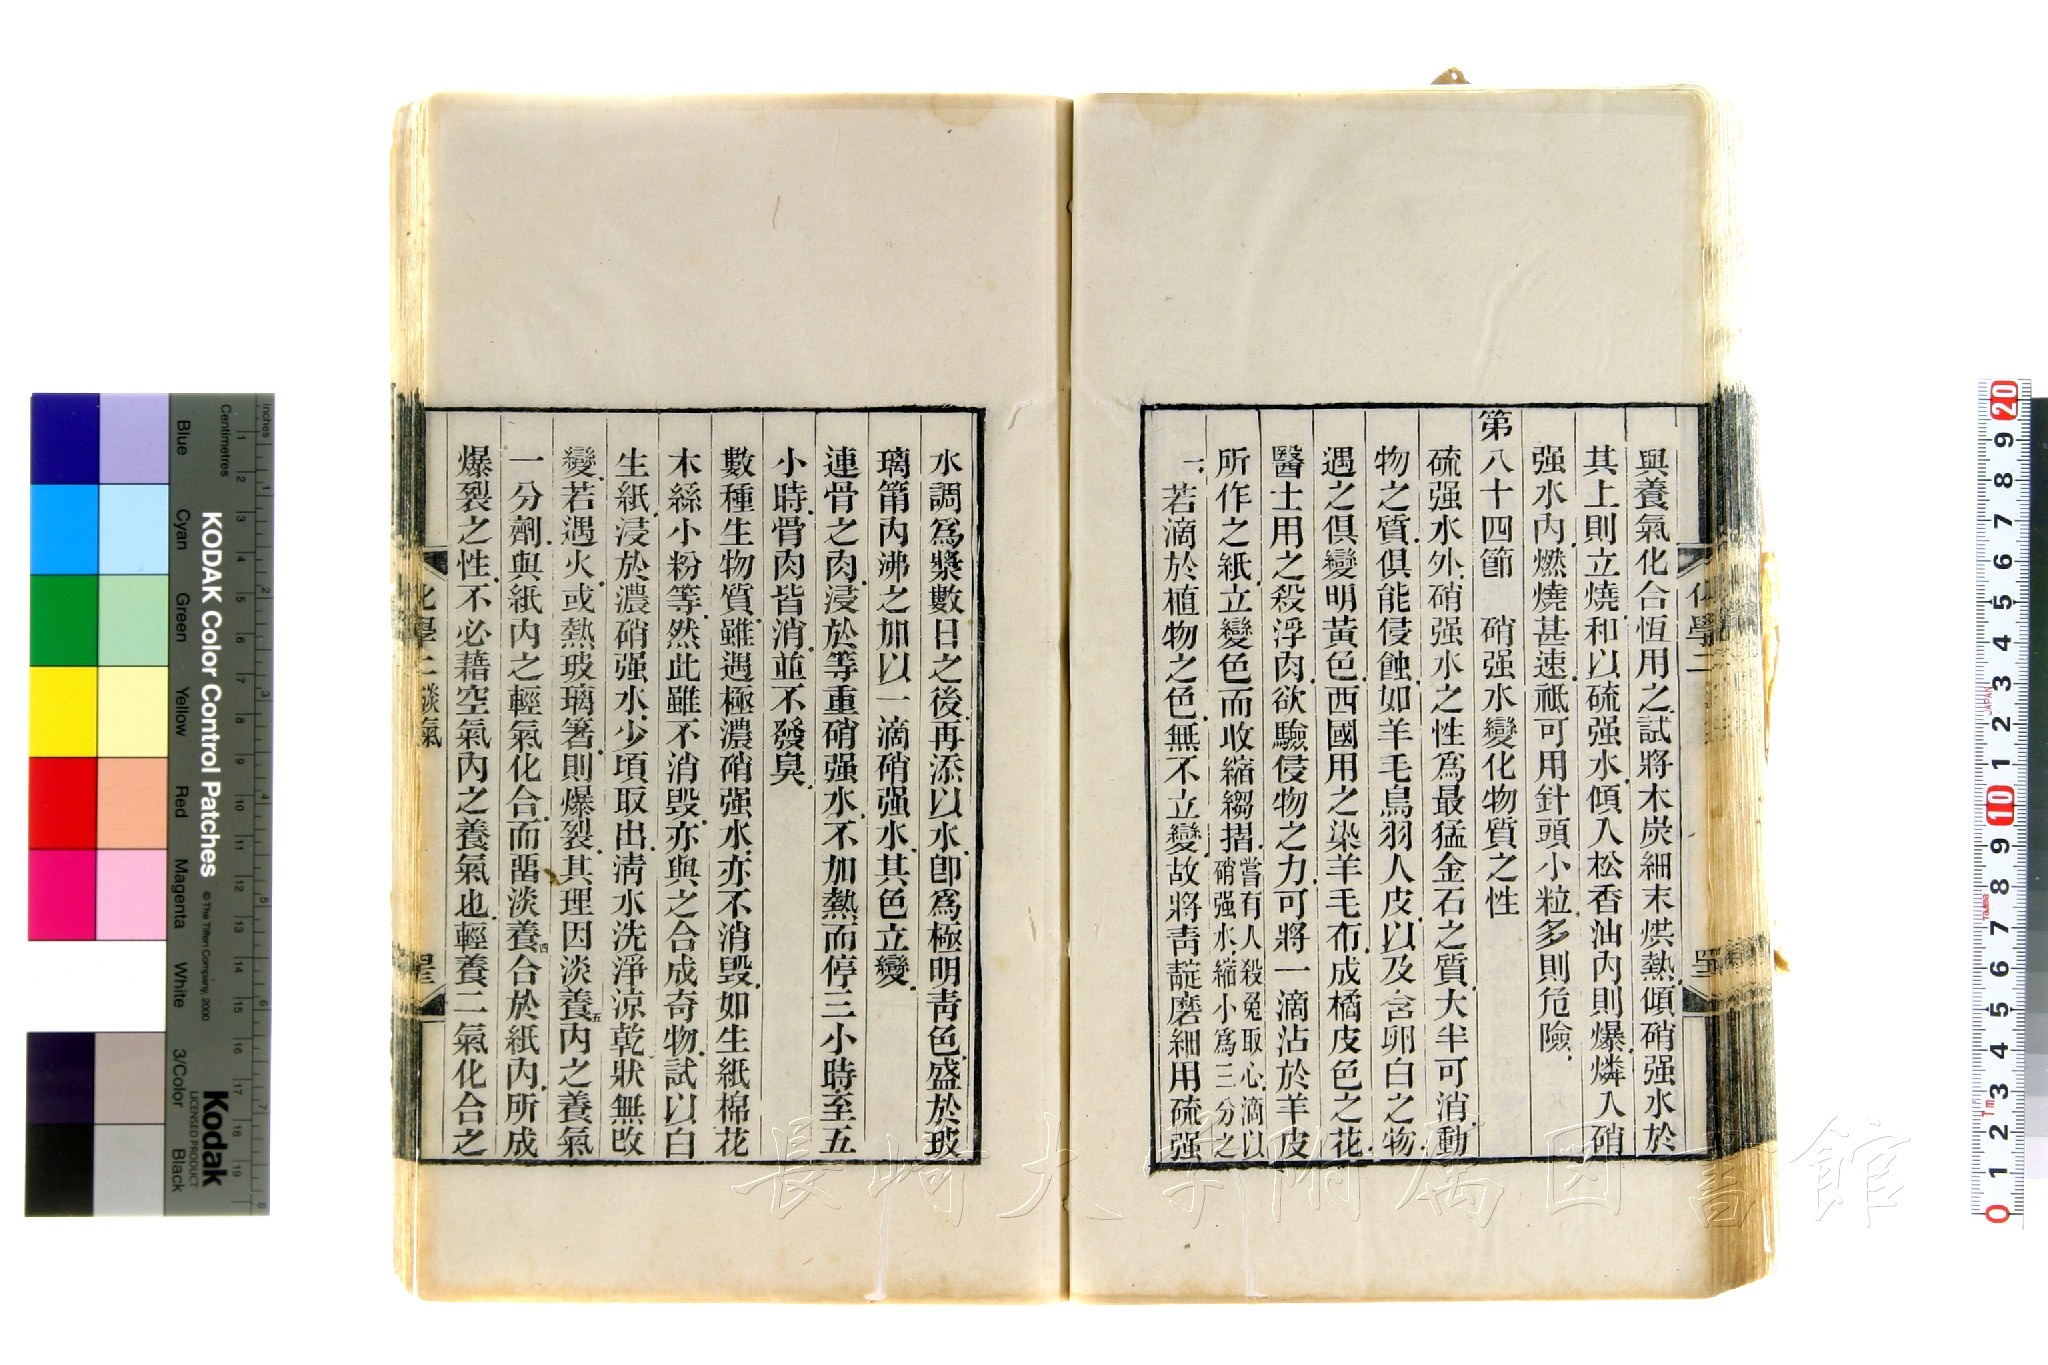 與養氣化合恆用之試將木炭細末烘熱傾硝强水於
其上則立燒和以硫强水傾入松香油內則爆燐入硝
强水內燃燒甚速祗可用針頭小粒多則危險
第八十四節　硝强水變化物質之性
硫强水外硝强水之性爲最猛金石之質大半可消動
物之質俱能侵蝕如羊毛鳥羽人皮以及含卵白之物
遇之俱變明黃色西國用之染羊毛布成橘皮色之花
醫士用之殺浮肉欲驗侵物之力可將一滴沾於羊皮
所作之紙立變色而收縮縐摺嘗有人殺兔取心滴以硝强水縮小爲三分之
一若滴於植物之色無不立變故將靑靛磨細用硫强
化學二
水調爲漿數日之後再添以水卽爲極明靑色盛於玻
璃筩內沸之加以一滴硝强水其色立變
連骨之肉浸於等重硝强水不加熱而停三小時至五
小時骨肉皆消並不發臭
數種生物質雖遇極濃硝强水亦不消毀如生紙棉花
木絲小粉等然此雖不消毀亦與之合成奇物試以白
生紙浸於濃硝强水少頃取出淸水洗淨涼乾狀無改
變若遇火或熱玻璃箸則爆裂其理因淡養五內之養氣
一分劑與紙內之輕氣化合而畱淡養四合於紙內所成
爆裂之性不必藉空氣內之養氣也輕養二氣化合之
化學二 淡氣
KODAK Color Control Patches
© The Tiffen Company, 2000
Kodak
LICENSED PRODUCT
Inches
Centimetres
Blue
Cyan
Green
Yellow
Red
Magenta
White
3/Color
Black
長崎大学附属図書館